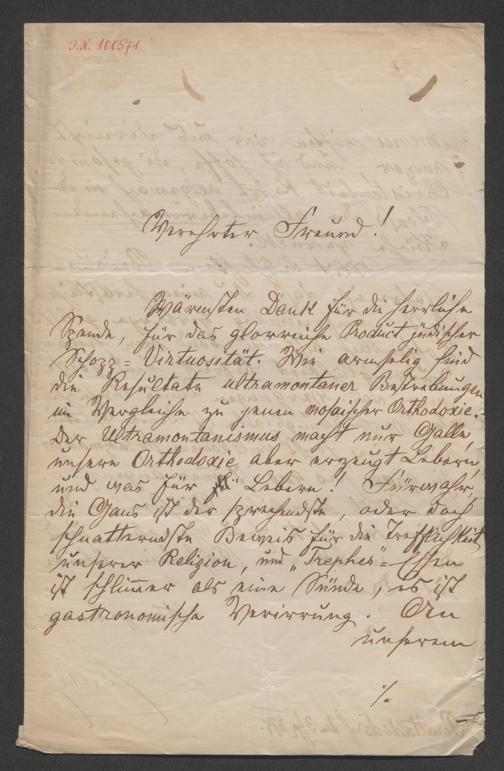 I.N. 100571
Verehrter Freund!
Wärmsten Dank für die herrliche
Spende, für das glorreiche Product jüdischer
Schopp-Virtuosität. Wie armselig sind
die Resultate ultramontaner Bestrebungen
im Vergleiche zu jenen mosaischer Orthodoxie.
Der Ultramontanismus macht nur Galle,
unsere Orthodoxie aber erzeugt Lebern,
und was für Lebern! Fürwahr,
die Gans ist der sprechendste, oder doch
schnatterndste Beweis für die Trefflichkeit
unserer Religion, und „Trephes"=Essen
ist schlimmer als eine Sünde, es ist
gastronomische Verirrung. An
unserem
./.